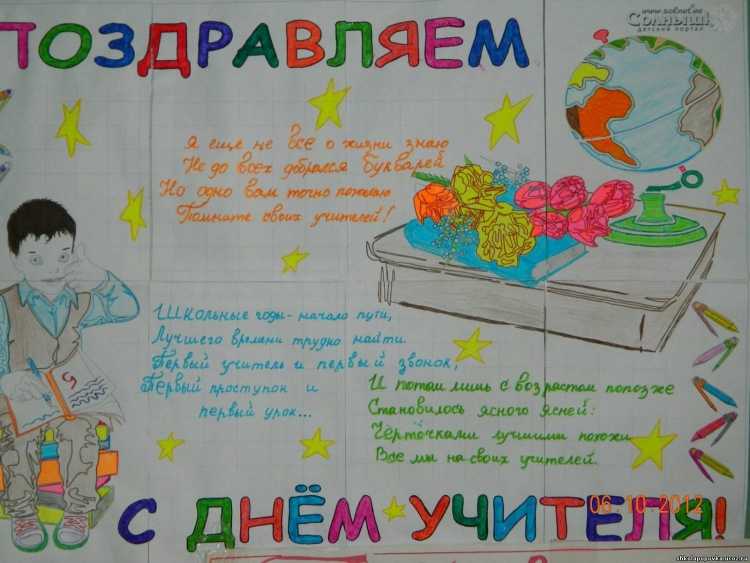 ПОЗДРАВЛЯЕМ
www.solnet.ee
СОЛНЫШК
детский портал
Я ещё не все о жизни знаю
Не до всех добрался букварей
Но одно вам точно пожелаю
Помните своих учителей!
Школьные годы - начало пути,
Лучшего времени трудно найти.
Первый учитель и первый звонок,
Первый проступок и
первый урок...
И потом лишь с возрастом попозже
Становилось ясного ясней:
Черточками лучшими похожи
Все мы на своих учителей.
5
С ДНЁМ УЧИТЕЛЯ!
06.10.2012
shkolapopovka.ucoz.ru